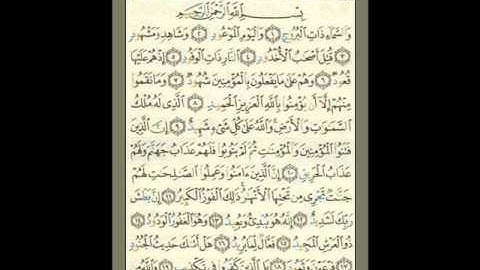 بِسْمِ ٱللَّهِ ٱلرَّحْمَٰنِ ٱلرَّحِيمِ
وَٱلسَّمَآءِ ذَاتِ ٱلْبُرُوجِ ١ وَٱلْيَوْمِ ٱلْمَوْعُودِ ٢ وَشَاهِدٍ وَمَشْهُودٍ
٣ قُتِلَ أَصْحَٰبُ ٱلْأُخْدُودِ ٤ ٱلنَّارِ ذَاتِ ٱلْوَقُودِ ٥ إِذْ هُمْ عَلَيْهَا
قُعُودٌ ٦ وَهُمْ عَلَىٰ مَا يَفْعَلُونَ بِٱلْمُؤْمِنِينَ شُهُودٌ ٧ وَمَا نَقَمُوا۟
مِنْهُمْ إِلَّآ أَن يُؤْمِنُوا۟ بِٱللَّهِ ٱلْعَزِيزِ ٱلْحَمِيدِ ٨ ٱلَّذِى لَهُۥ مُلْكُ
ٱلسَّمَٰوَٰتِ وَٱلْأَرْضِ وَٱللَّهُ عَلَىٰ كُلِّ شَىْءٍ شَهِيدٌ ٩ إِنَّ ٱلَّذِينَ
فَتَنُوا۟ ٱلْمُؤْمِنِينَ وَٱلْمُؤْمِنَٰتِ ثُمَّ لَمْ يَتُوبُوا۟ فَلَهُمْ عَذَابُ جَهَنَّمَ وَلَهُمْ
عَذَابُ ٱلْحَرِيقِ ١٠ إِنَّ ٱلَّذِينَ ءَامَنُوا۟ وَعَمِلُوا۟ ٱلصَّٰلِحَٰتِ لَهُمْ
جَنَّٰتٌ تَجْرِى مِن تَحْتِهَا ٱلْأَنْهَٰرُ ذَٰلِكَ ٱلْفَوْزُ ٱلْكَبِيرُ ١١ إِنَّ بَطْشَ
رَبِّكَ لَشَدِيدٌ ١٢ إِنَّهُۥ هُوَ يُبْدِئُ وَيُعِيدُ ١٣ وَهُوَ ٱلْغَفُورُ ٱلْوَدُودُ ١٤
ذُو ٱلْعَرْشِ ٱلْمَجِيدُ ١٥ فَعَّالٌ لِّمَا يُرِيدُ ١٦ هَلْ أَتَىٰكَ حَدِيثُ ٱلْجُنُودِ
١٧ فِرْعَوْنَ وَثَمُودَ ١٨ بَلِ ٱلَّذِينَ كَفَرُوا۟ فِى تَكْذِيبٍ ١٩ وَٱللَّهُ مِن